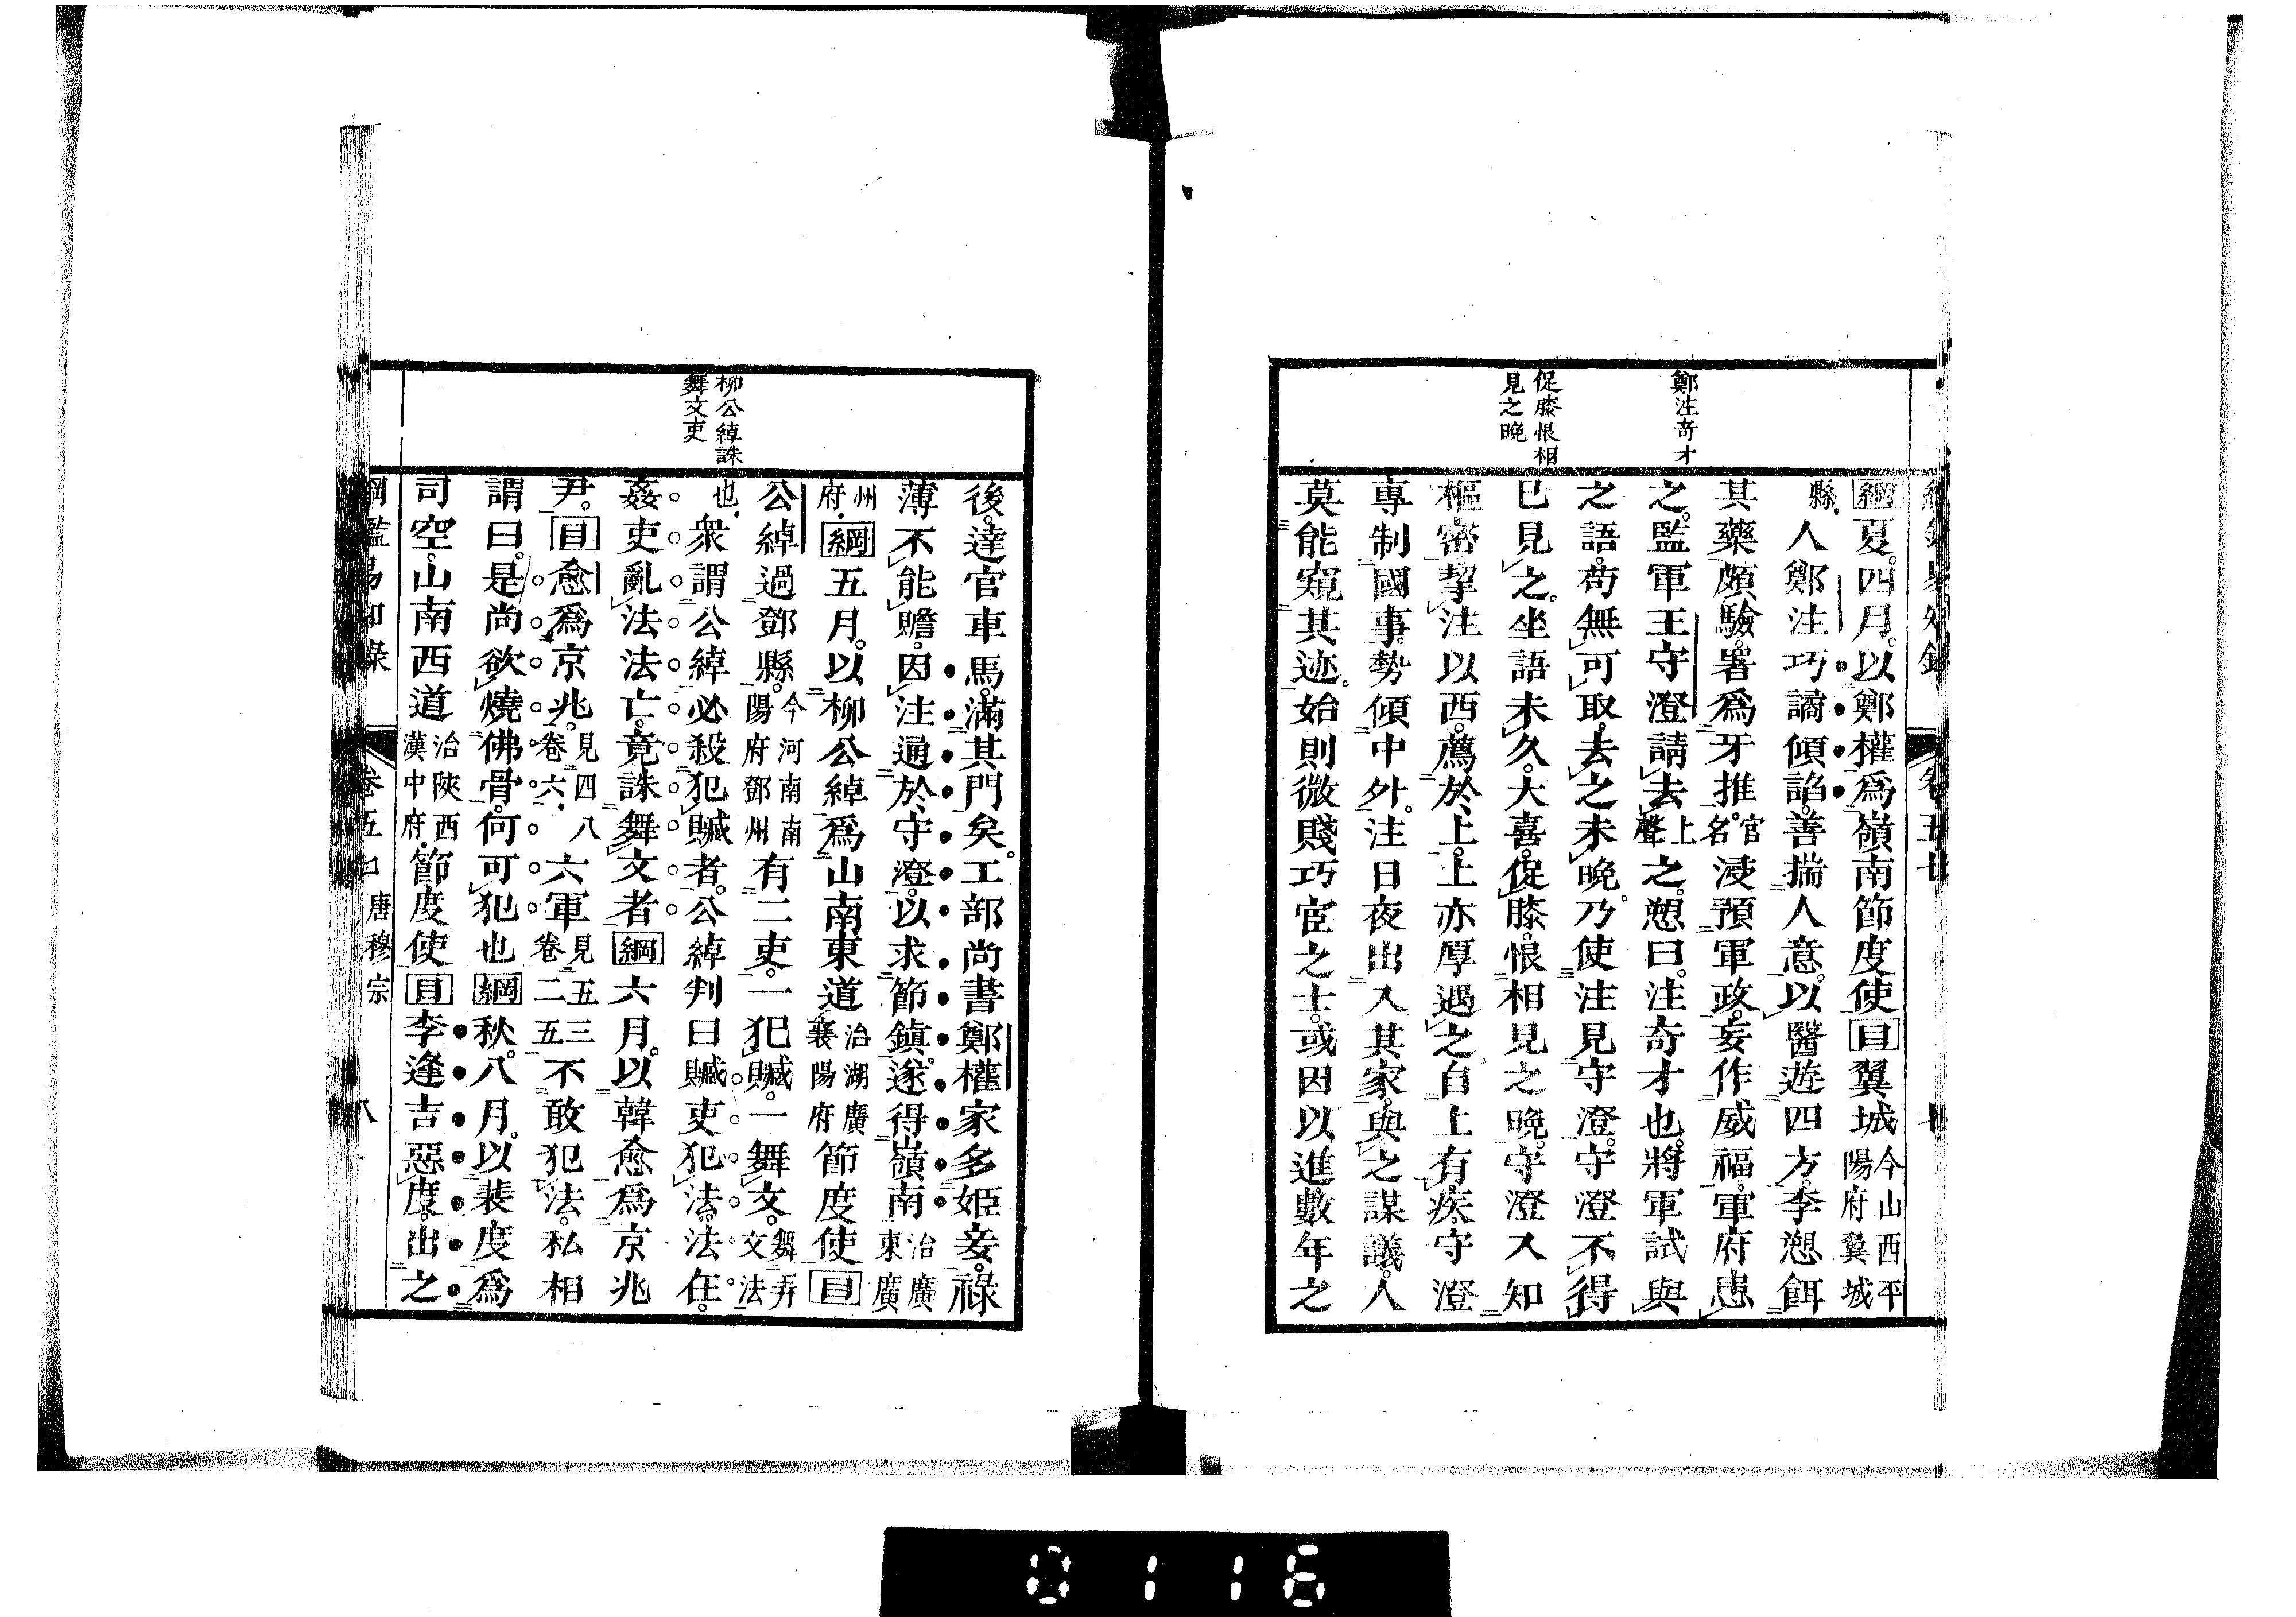 鄭注奇才
促膝恨相
見之晚
綱夏。四月。以鄭權爲嶺南節度使目翼城今山西平陽府翼城
縣。人鄭注巧譎傾諂。善揣人意。以醫遊四方。李愬餌
其藥頗驗。署爲牙推。官名浸預軍政。妄作威福。軍府患
之。監軍王守澄請去上聲之。愬曰。注奇才也。將軍試與
之語。苟無可取。去之未晚。乃使注見守澄。守澄不得
已見之。坐語未久。大喜。促膝。恨相見之晚。守澄入知
樞密。挈注以西。薦於上。上亦厚遇之。自上有疾。守澄
專制國事。勢傾中外。注日夜出入其家。與之謀議。人
莫能窺其迹。始則微賤巧宦之士。或因以進。數年之
柳公綽誅
舞文吏
後。達官車馬。滿其門矣。工部尚書鄭權家多姬妾。祿
薄不能贍。因注通於守澄。以求節鎮。遂得嶺南治廣東廣
州府。綱五月。以柳公綽爲山南東道治湖廣襄陽府節度使目
公綽過鄧縣。今河南南陽府鄧州有二吏。一犯贓。一舞文。舞弄文法
也。衆謂公綽必殺犯贓者。公綽判曰贓吏犯法。法在。
姦吏亂法法亡。竟誅舞文者綱六月。以韓愈爲京兆
尹。目愈爲京兆。見四八卷六。六軍見五三卷二五不敢犯法。私相
謂曰。是尚欲燒佛骨。何可犯也綱秋。八月。以裴度爲
司空。山南西道治陝西漢中府。節度使目李逢吉惡度。出之
綱鑑易知錄 卷五七 唐穆宗 八
0116